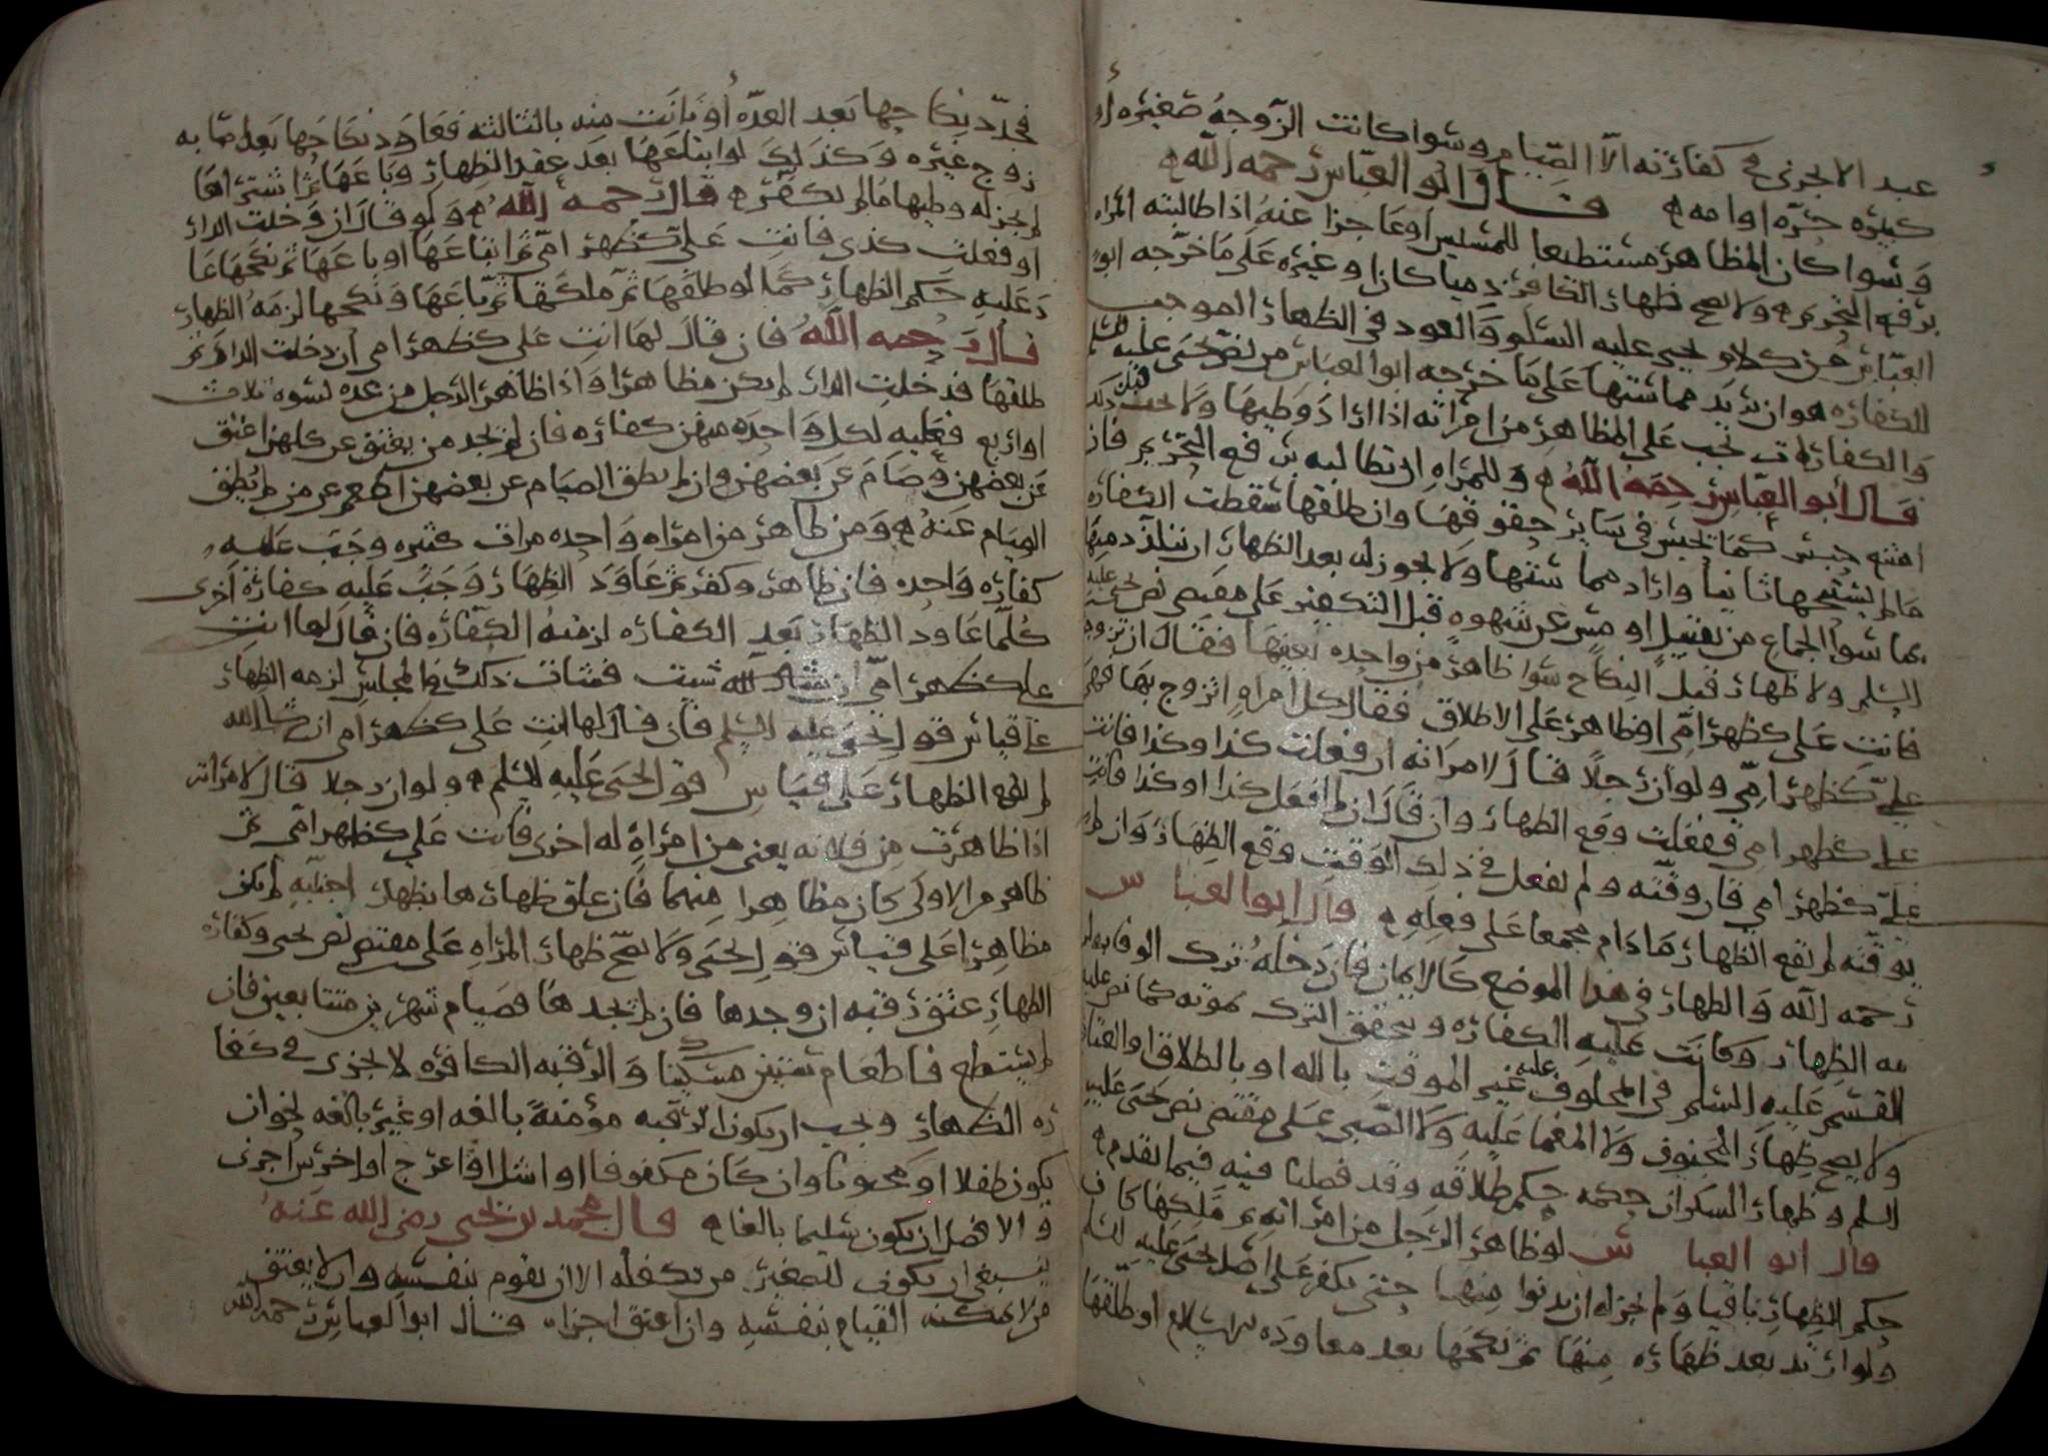 عبد الا يجزى في كفارته الا الصيام وسوا كانت الزوجه صغيره او
كبيره حره او امه قال ابو العباس رحمه الله
وسوا كان المظاهر مستطيعا للمسيس او عاجزا عنه اذا طالبته المراه
برفع التحريم ولا يصح ظهار الكافر ذميا كان او غيره على ما خرجه ابو
العباس من كلام يحيى عليه السلم والعود في الظهار الموجب
للكفاره هو ان يريد مماستها على ما خرجه ابو العباس من نص يحيى عليه السلم
والكفاره تجب على المظاهر من امراته اذا اراد وطيها ولا تجب قبل ذلك
قال ابو العباس رحمه الله وللمراه ان تطالبه برفع التحريم فان
امتنع حبس كما يحبس في ساير حقوقها وان طلقها سقطت الكفاره
ما لم يستنكحها ثانيا واراد مماستها ولا يجوز له بعد الظهار ان يتلذذ منها
بما سوا الجماع من تقبيل او مس عن شهوه قبل التكفير على مقتضى نص يحيى عليه
السلم ولا ظهار قبل النكاح سوا ظاهر من واحده بعينها فقال ان تزوجتك
فانت على كظهر امي او ظاهر على الاطلاق فقال كل امراه اتزوج بها فهي
علي كظهر امي ولو ان رجلا قال لامراته ان فعلت كذا وكذا فانت
علي كظهر امي ففعلت وقع الظهار وان قال ان لم افعل كذا او كذا فانت
علي كظهر امي فان وقته ولم يفعل في ذلك الوقت وقع الظهار وان لم
يوقته لم يقع الظهار ما دام مجمعا على فعله قال ابو العباس
رحمه الله والظهار في هذا الموضع كالايمان فان دخله ترك الوفا به لزم
به الظهار وكانت عليه الكفاره ويتحقق الترك بموته كما نص عليه
القسم عليه السلم في المحلوف عليه غير الموقت بالله او بالطلاق او العتاق
ولا يصح ظهار المجنون ولا المغما عليه ولا الصبي على مقتضى نص يحيى عليه
السلم وظهار السكران حكمه حكم طلاقه وقد فصلنا فيه فيما تقدم
قال ابو العباس لو ظاهر الرجل من امراته ثم ملكها كان
حكم الظهار باقيا ولم يجز له ان يدنوا منها حتى يكفر على اصل يحيى عليه السلم
ولو ارتد بعد ظهاره منها ثم نكحها بعد معاوده الاسلام او طلقها
فجدد نكاحها بعد العده او بانت منه بالثالثه فعاود نكاحها بعد اصابه
زوج غيره وكذلك لو ابتاعها بعد عقد الظهار وباعها ثم اشتراها
لم يجز له وطيها ما لم يكفر قال رحمه الله ولو قال ان دخلت الدار
او فعلت كذى فانت علي كظهر امي ثم ابتاعها او باعها ثم نكحها عا
د عليه حكم الظهار كما لو طلقها ثم ملكها ثم باعها ونكحها لزمه الظهار
قال رحمه الله فان قال لها انت على كظهر امي ان دخلت الدار ثم
طلقها فدخلت الدار لم يكن مظاهرا واذا ظاهر الرجل من عده نسوه ثلاث
او اربع فعليه لكل واحده منهن كفاره فان لم يجد من يعتق عن كلهن اعتق
عن بعضهن وصام عن بعضهن وان لم يطق الصيام عن بعضهن اطعم عن من لم يطق
الصيام عنه ومن ظاهر من امراه واحده مرات كثيره وجب عليه
كفاره واحده فان ظاهر وكفر ثم عاود الظهار وجب عليه كفاره اخرى
كلما عاود الظهار بعد الكفاره لزمته الكفاره فان قال لها انت
علي كظهر امي ان شئت فشات ذلك في المجلس لزمه الظهار
على قياس قول يحيى عليه السلم فان قال لها انت على كظهر امي ان شا الله
لم يقع الظهار على قياس قول يحيى عليه السلم ولو ان رجلا قال لامراته
اذا ظاهرت من فلانه يعنى من امراه له اخرى فانت علي كظهر امي ثم
ظاهر من الاولى كان مظاهرا منهما فان علق ظهارها بظهار اجنبيه لم يكن
مظاهرا على قياس قول يحيى ولا يصح ظهار المراه على مقتضى نص يحيى وكفاره
الظهار عتق رقبه ان وجدها فان لم يجدها فصيام شهرين متتابعين فان
لم يستطع فاطعام ستين مسكينا والرقبه الكافره لا تجزى في كفا
ره الظهار ويجب ان يكون الرقبه مؤمنة بالغه او غير بالغه يجوز ان
يكون طفلا او مجنونا وان كان مكفوفا او اشل او اعرج او اخرس اجزى
والافضل ان يكون سليما بالغا قال محمد بن يحيى رضى الله عنه
ينبغي ان يكون للصغير من يكفله الا ان يقوم بنفسه وان لا يعتق
من لا يمكنه القيام بنفسه وان اعتق اجزاه قال ابو العباس رحمه الله